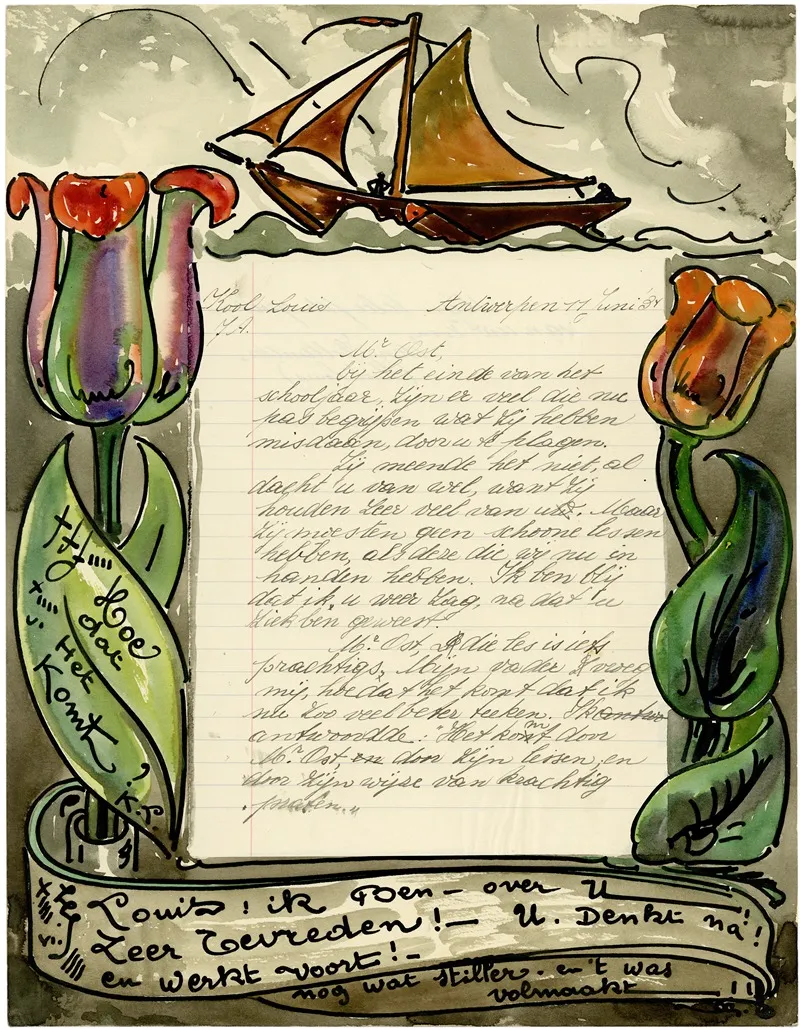 Kool Louis Antwerpen 17 Juni
Mr. Ost,
bij het einde van het
schooljaar, zijn er veel die nu
pas begrijpen wat zij hebben
misdaan, door u te plagen.
Zij meende het niet, al
dacht u van wel, want zij
houden zeer veel van u. Maar
zij moesten geen schoone lessen
hebben, als deze die, wij nu in
handen hebben. Ik ben blij
dat ik, u weer zag, na dat u
ziek ben geweest.
Mr. Ost, die les is iets
prachtigs. Mijn vader vroeg
mij, hoe dat het komt dat ik
nu zoo veel beter teeken. Ik
antwoordde: Het komt door
Mr. Ost, en door zijn lessen, en
door zijn wijze van krachtig
praten."
Hoe
dat
Het
Komt
?
Louis! ik Ben — over U
Zeer Tevreden! — U. Denkt na!
en werkt voort! —
nog wat stiller. en 't was
volmaakt !!